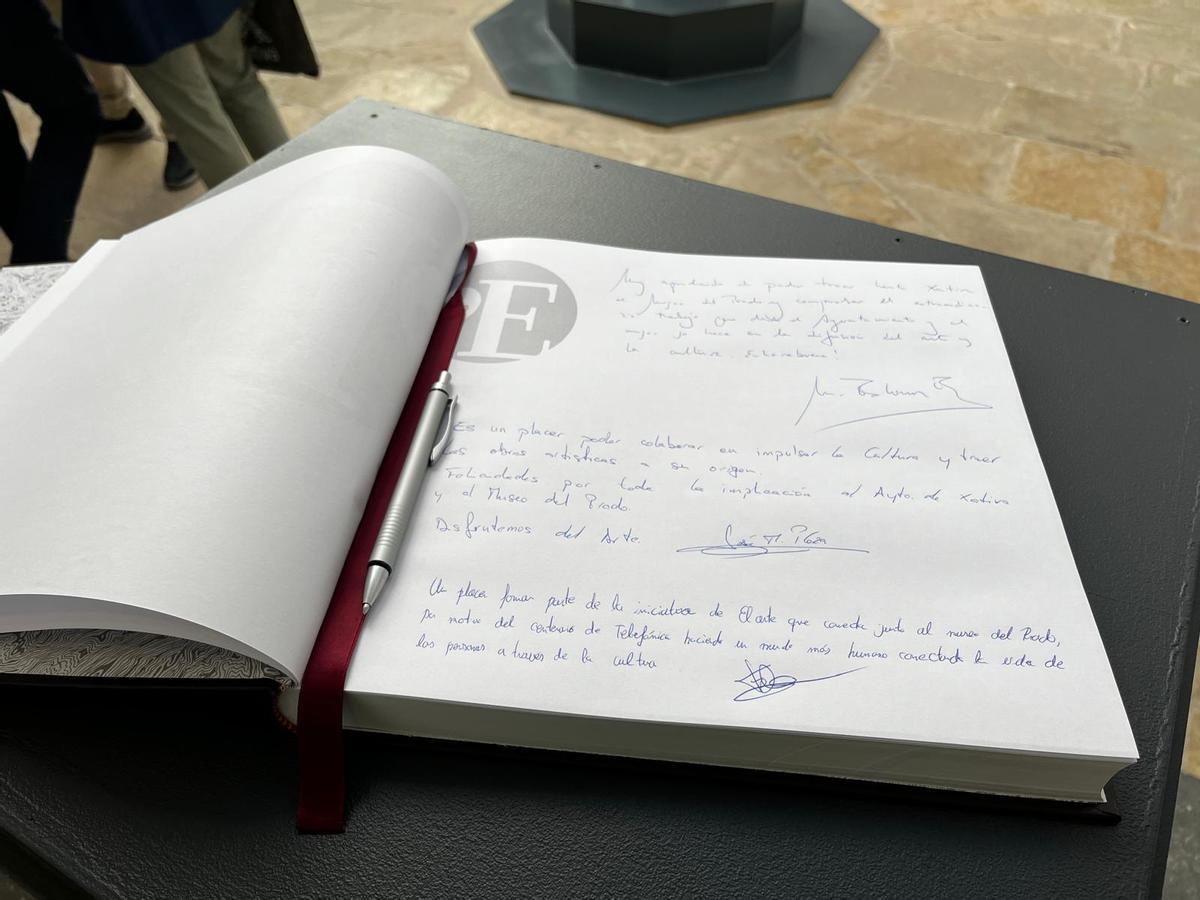 E
Muy agradecido de poder traer hasta Xàtiva
el Museo del Prado y comprobar el extraordina-
rio trabajo que desde el Ayuntamiento y el
museo se hace en la difusión del arte y
la cultura. Enhorabuena!
Es un placer poder colaborar en impulsar la Cultura y traer
las obras artísticas a su origen.
Felicidades por toda la implicación al Ayto. de Xativa
y al Museo del Prado.
Disfrutemos del Arte. José M.
Un placer formar parte de la iniciativa de El arte que conecta junto al museo del Prado,
por motivo del centenario de Telefónica haciendo un mundo más humano conectando la vida de
las personas a traves de la cultura